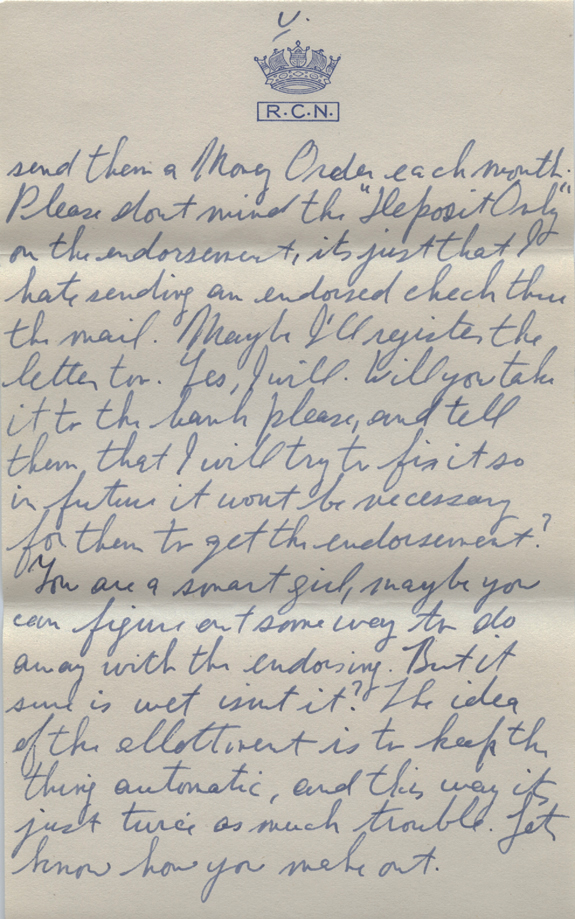 V.
R.C.N.
send them a Money Order each month.
Please dont mind the "Deposit Only"
on the endorsement, its just that I
hate sending an endorsed check thru
the mail. Maybe I'll register the
letter too. Yes, I will. Will you take
it to the bank please, and tell
them that I will try to fix it so
in future it wont be necessary
for them to get the endorsement?
You are a smart girl, maybe you
can figure out some way to do
away with the endorsing. But it
sure is wet isnt it? The idea
of the allottment is to keep the
thing automatic, and this way its
just twice as much trouble. Let
know how you make out.